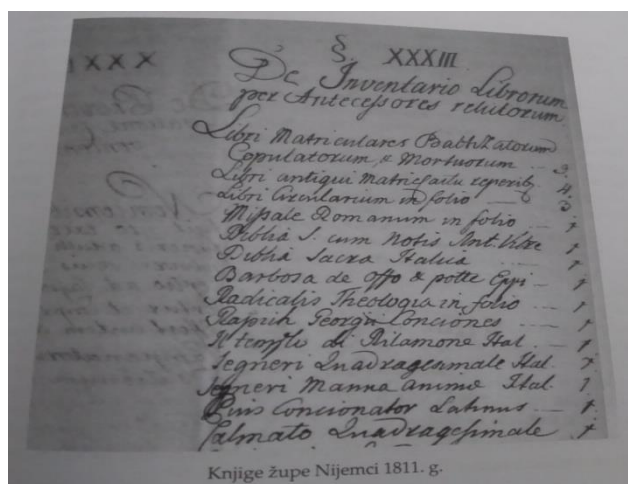 XXXI
§. XXXIII.
De Inventario Librorum
per Antecessores relictorum
Libri Matriculares Babtizatorum
Copulatorum, & Mortuorum 3.
Libri antiqui 4.
Libri Circularium in folio 3
Missale Romanum in folio 1
Biblia S. cum Notis Ant. 1
Biblia Sacra Italica 1
Barbosa de offo & potte Eppi 1
Radicalis Theologia in folio 1
Rapich Georgii Conciones 1
Il tempio di Ital. 1
Segneri Quadragesimale Ital. 1
Segneri Manna anime Ital. 1
Pius Concionator Latinus 1
Calmato Quadragesimale 1
Knjige župe Nijemci 1811. g.